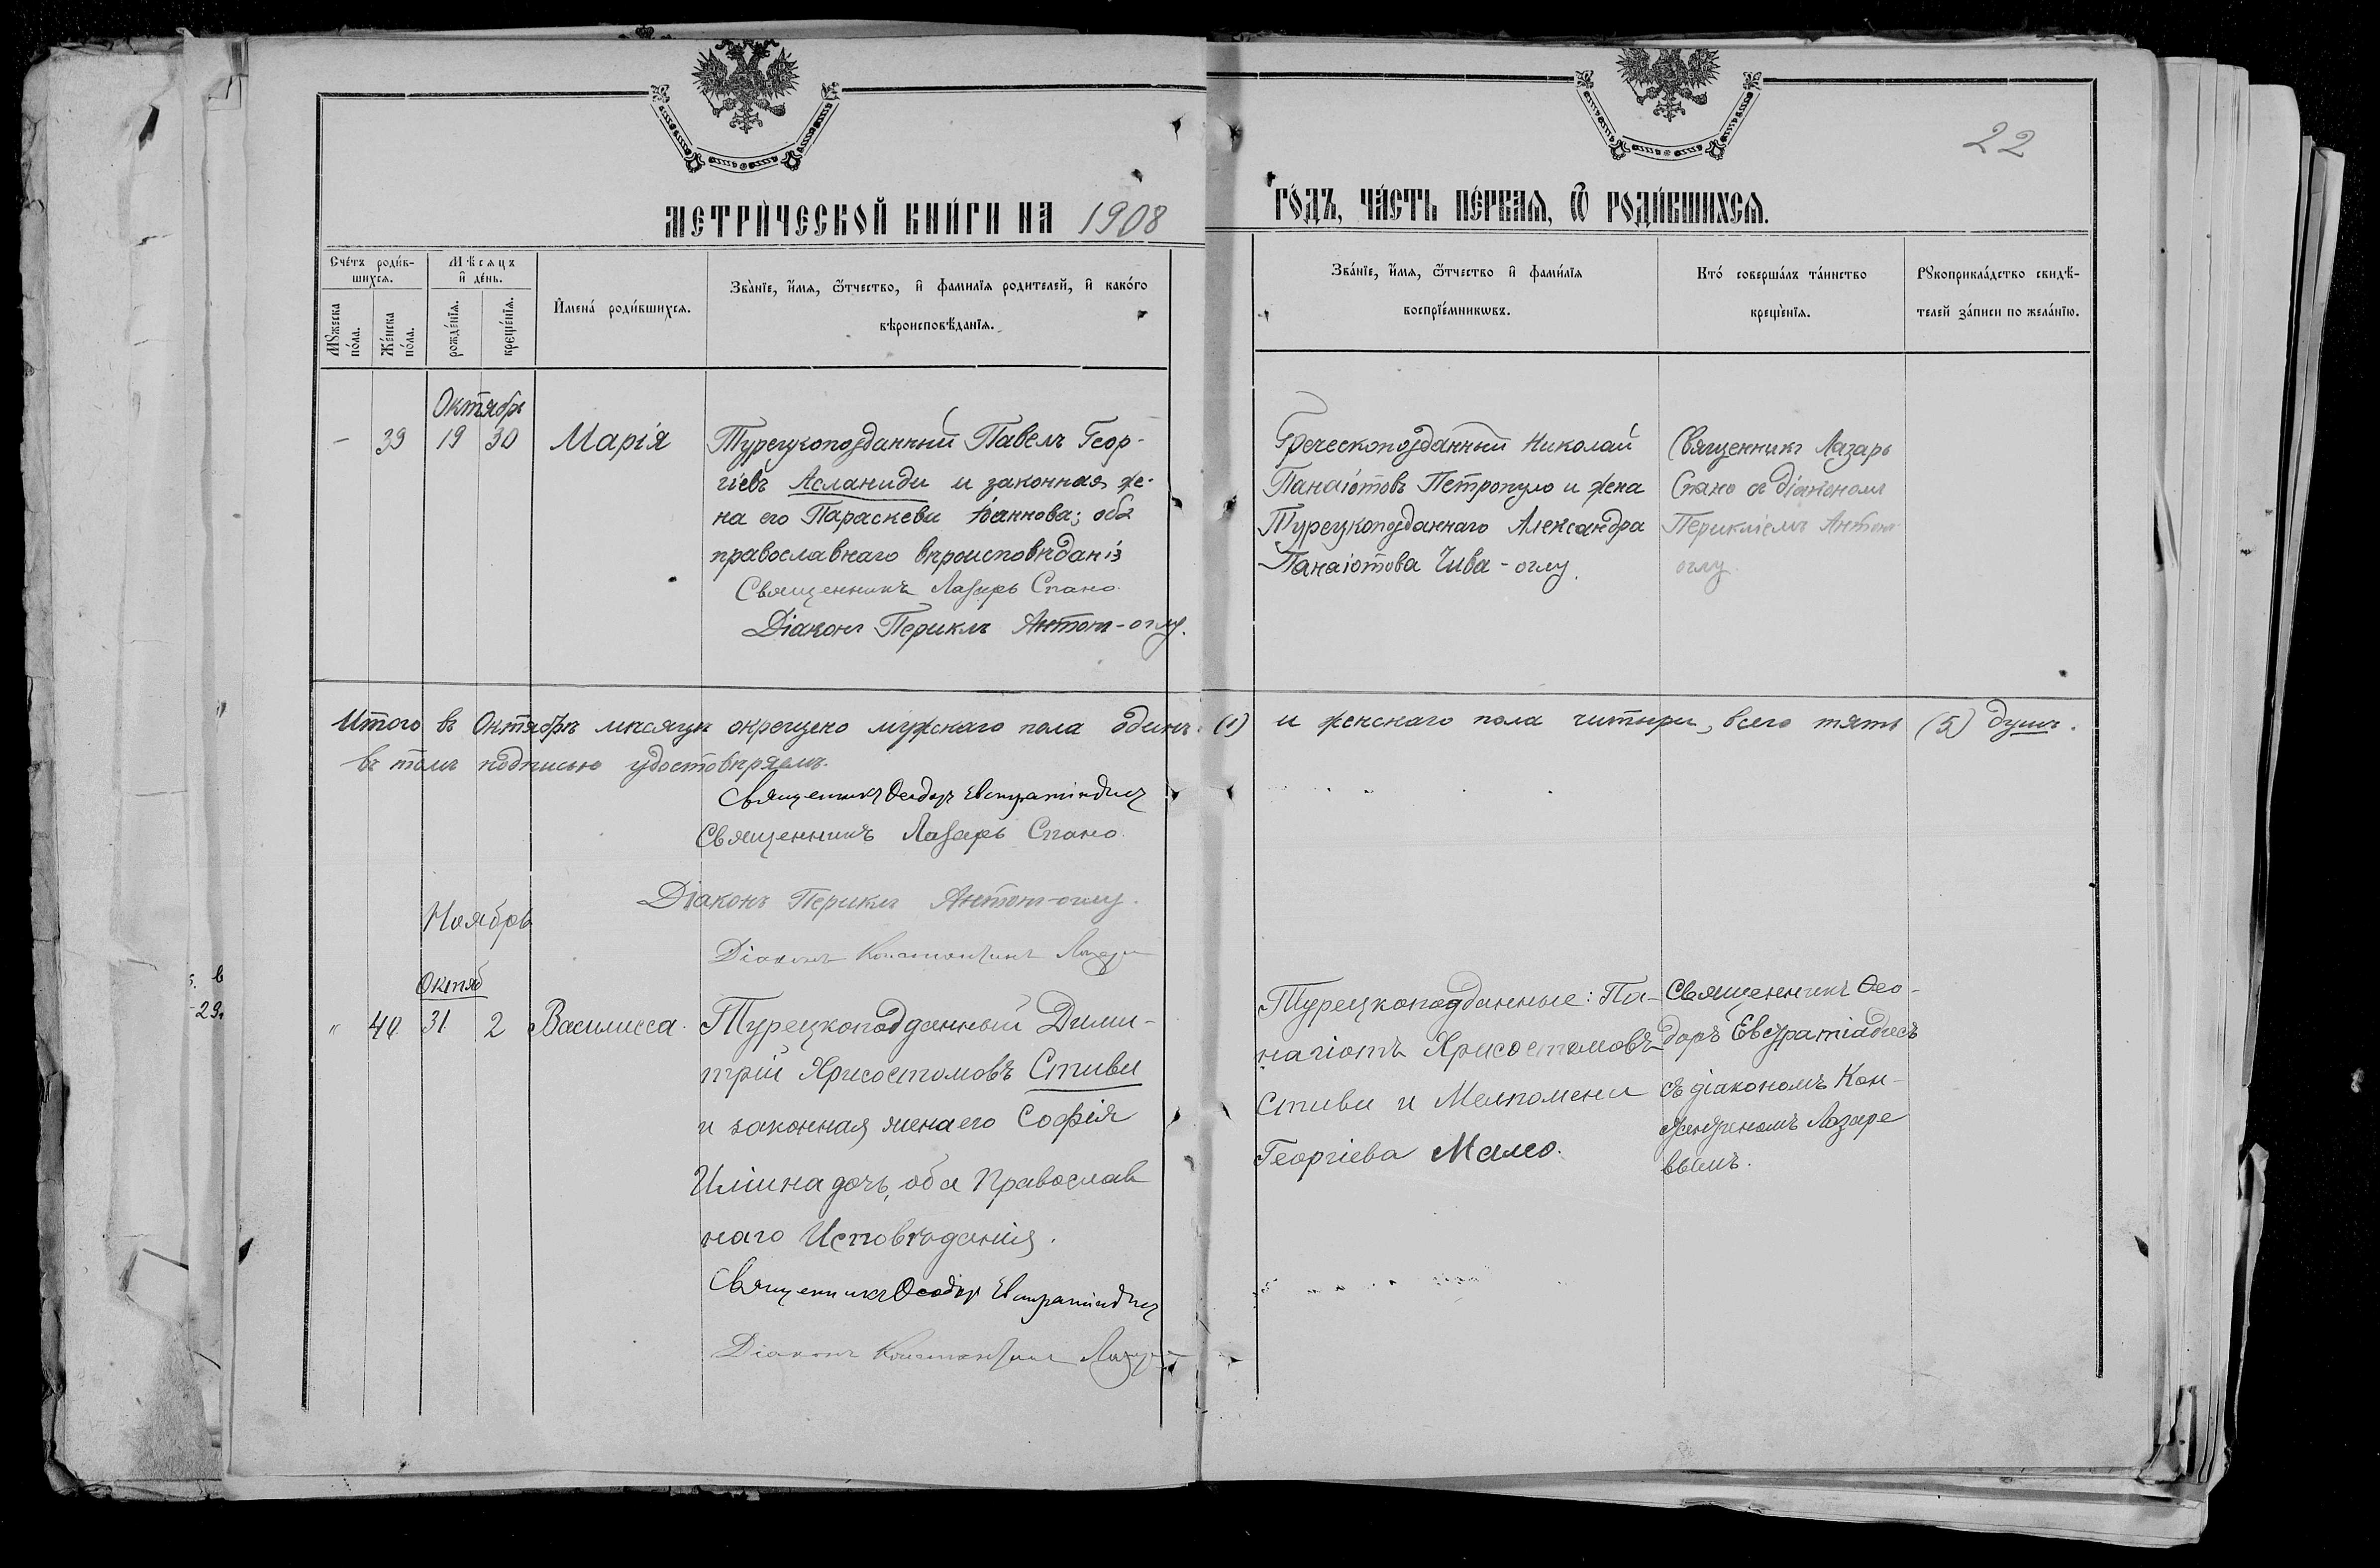 22
МЕТРИ́ЧЕСКОЙ КНИ́ГИ НА 1908 ГО́ДЪ, ЧА́СТЬ ПЕ́РВАѦ, Ѿ РОДИ́ВШИХСѦ.
Сче́тъ роди́в-
шихся.
Мꙋжеска по́ла.
Же́нска по́ла.
Мѣсяцъ
и҆ де́нь.
рожде́нїя.
креще́нїя.
И҆мена́ роди́вшихся.
Зва́нїе, и҆́мя, ѻ҆́тчество, и҆ фами́лїя родителей, и҆ како́го
вѣроисповѣ́данїя.
Зва́нїе, и҆́мя, ѻ҆́тчество и҆ фами́лїя
воспрїе́мникѡвъ.
Кто́ соверша́лъ та́инство
креще́нїя.
Рꙋкоприкла́дство свидѣ́-
телей за́писи по жела́нїю.
Октябрь
— 39 19 30 Марія
Турецкоподданный Павелъ Геор-
гіевъ Асланиди и законная же-
на его Параскеви Іоаннова; оба
православнаго вѣроисповѣданія
Священникъ Лазарь Спано
Діаконъ Периклъ Антонъ-оглу.
Греческоподданный Николай
Панаіотовъ Петропуло и жена
Турецкоподданнаго Александра
Панаіотова Чива-оглу.
Священникъ Лазарь
Спано съ діакономъ
Перикліемъ Антонъ
оглу.
Итого въ Октябрѣ мѣсяцѣ окрещено мужскаго пола одинъ (1) и женскаго пола читыри, всего пять (5) душъ.
въ томъ подписью удостовѣряемъ.
Священникъ Ѳеодоръ Евстратіадисъ
Священникъ Лазарь Спано
Діаконъ Периклъ Антонъ-оглу.
Діаконъ Константинъ
Ноябрь
Октяб
" 40 31 2 Василисса
Турецкоподданный Дими-
трій Хрисостомовъ Стиви
и законная жена его Софія
Иліина дочь, оба Православ
наго Исповѣданія.
Священникъ Ѳеодоръ Евстратіадисъ
Діаконъ Константинъ
Турецкоподданные: Па-
нагіотъ Хрисостомовъ
Стиви и Мелпомени
Георгіева Мамо.
Священникъ Ѳео-
доръ Евстратіадисъ
съ діакономъ Кон-
стантиномъ Лазаре
вымъ.
в
29.